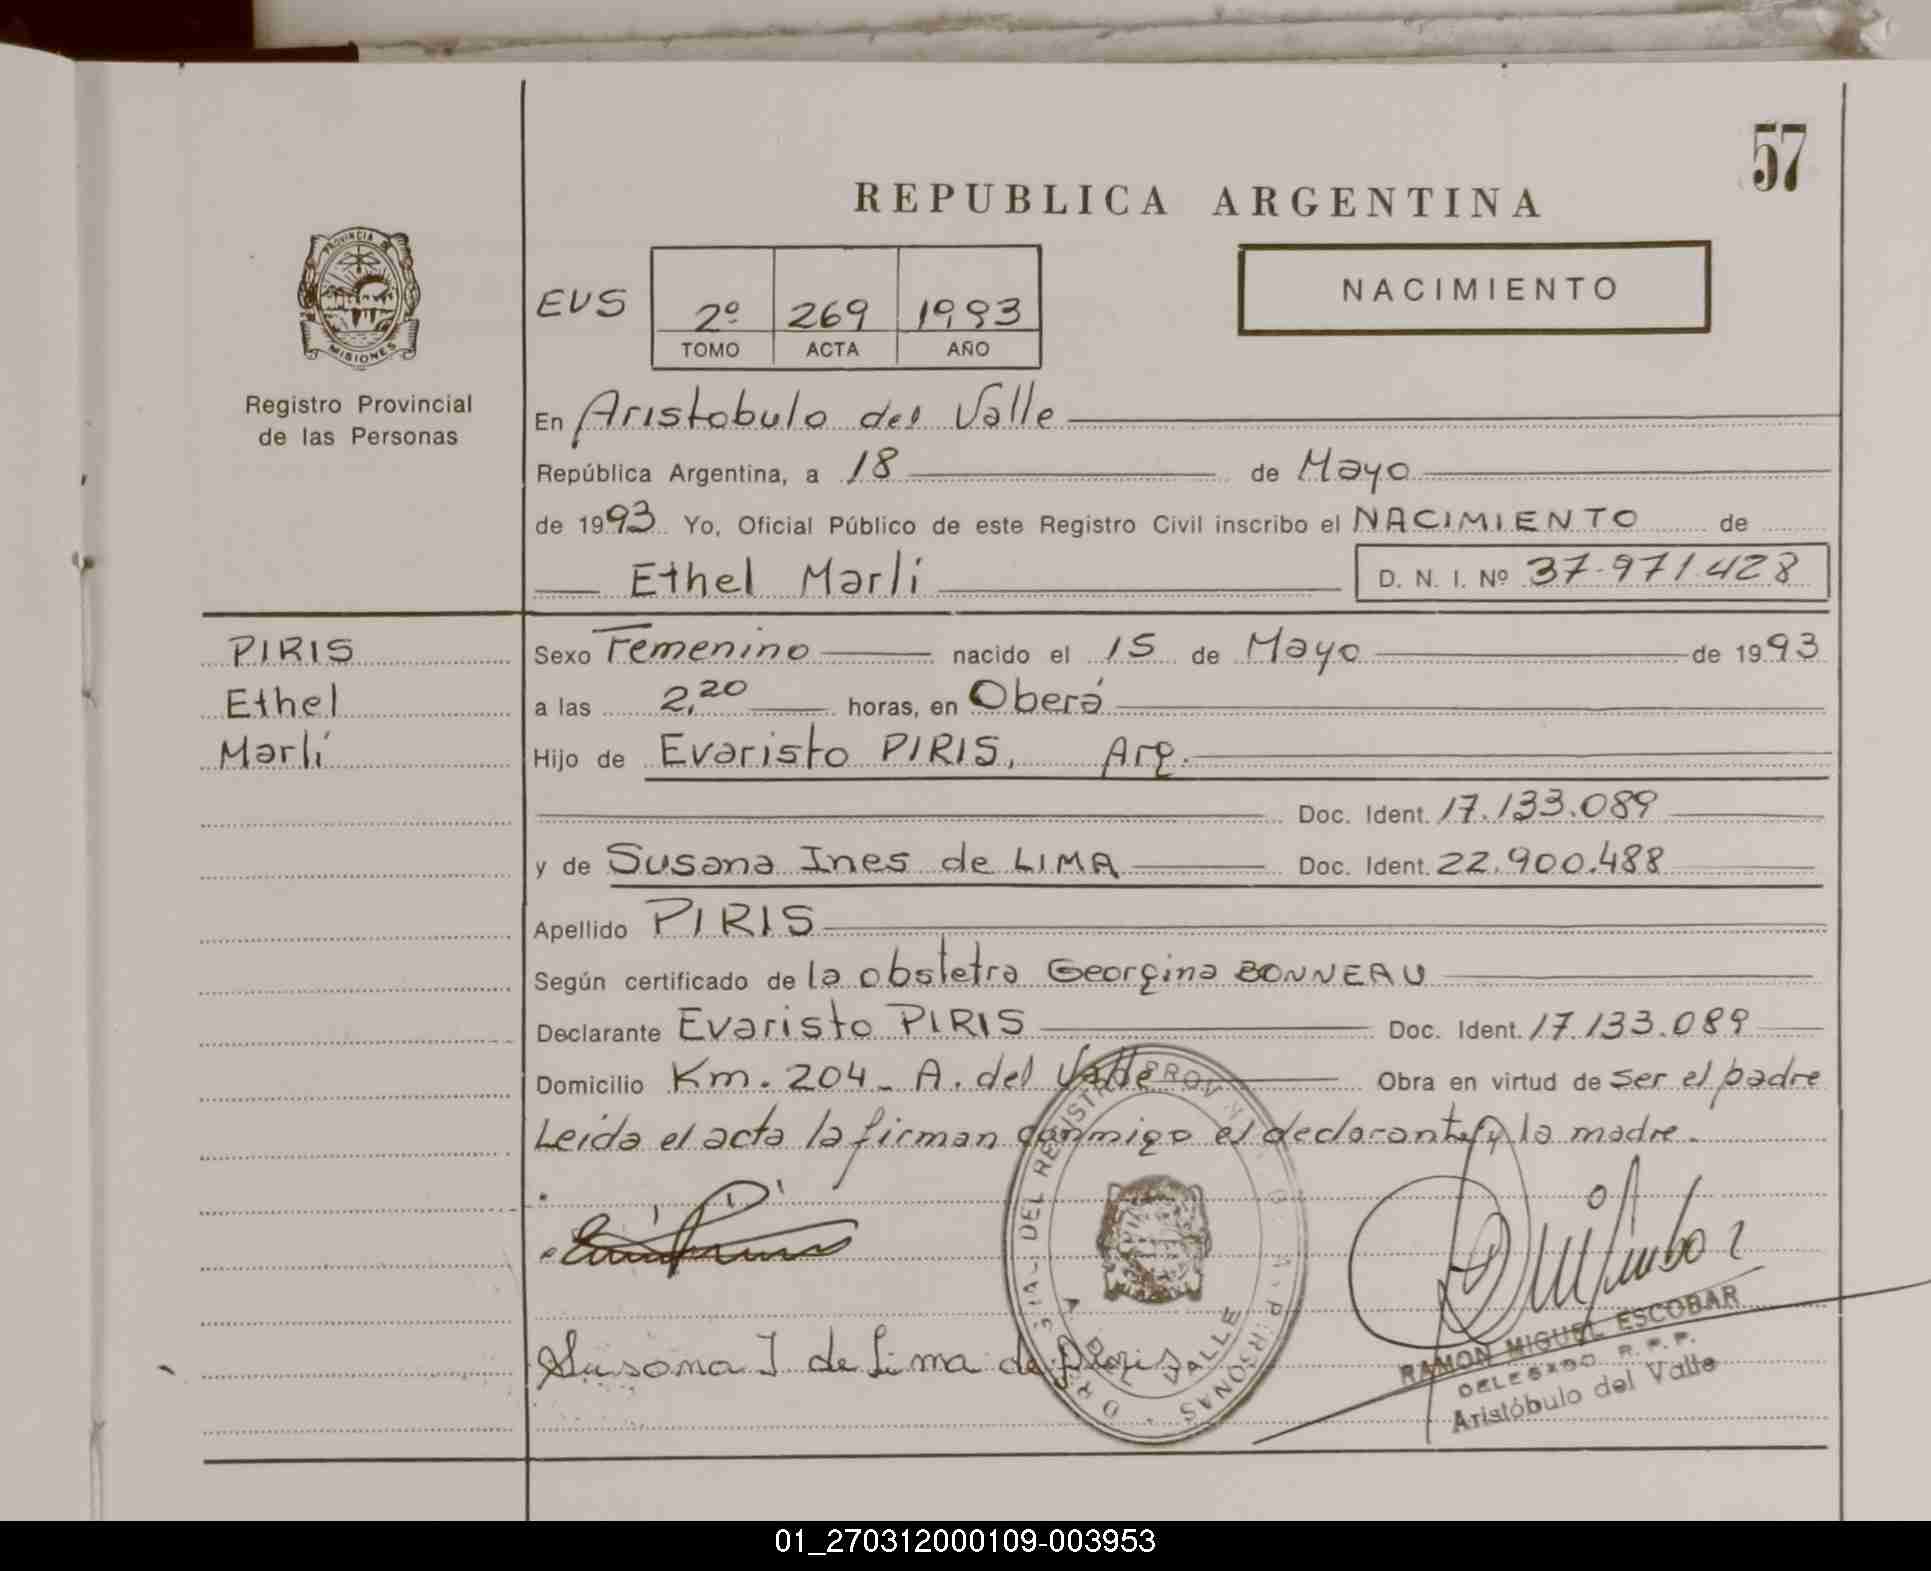 57
REPUBLICA ARGENTINA
PROVINCIA DE
MISIONES
Registro Provincial
de las Personas
EUS
2º 269 1993
TOMO ACTA AÑO
NACIMIENTO
En Aristobulo del Valle
República Argentina, a 18 de Mayo
de 1993 Yo, Oficial Público de este Registro Civil inscribo el NACIMIENTO de
Ethel Marlí D. N. I. Nº 37.971.428
PIRIS
Ethel
Marlí
Sexo Femenino nacido el 15 de Mayo de 1993
a las 2,20 horas, en Oberá
Hijo de Evaristo PIRIS, Arg.
Doc. Ident. 17.133.089
y de Susana Ines de LIMA Doc. Ident. 22.900.488
Apellido PIRIS
Según certificado de la obstetra Georgina BONNEAU
Declarante Evaristo PIRIS Doc. Ident. 17.133.089
Domicilio Km. 204 - A. del Valle Obra en virtud de ser el padre
Leida el acta la firman conmigo el declarante y la madre.
Susana I de Lima de Piris
DEL VALLE
RAMON MIGUEL ESCOBAR
DELEGADO R.P.P.
Aristóbulo del Valle
01_270312000109-003953